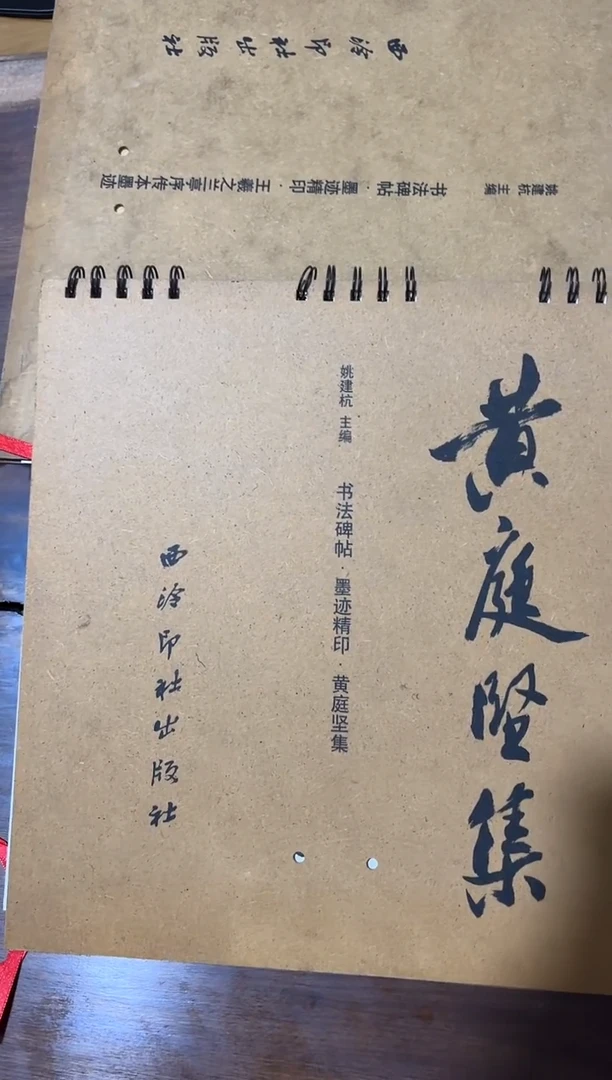 西泠印社出版社
书法碑帖·墨迹精印·王羲之兰亭序传本墨迹
姚建杭 主编
黄庭坚集
姚建杭 主编
书法碑帖·墨迹精印·黄庭坚集
西泠印社出版社